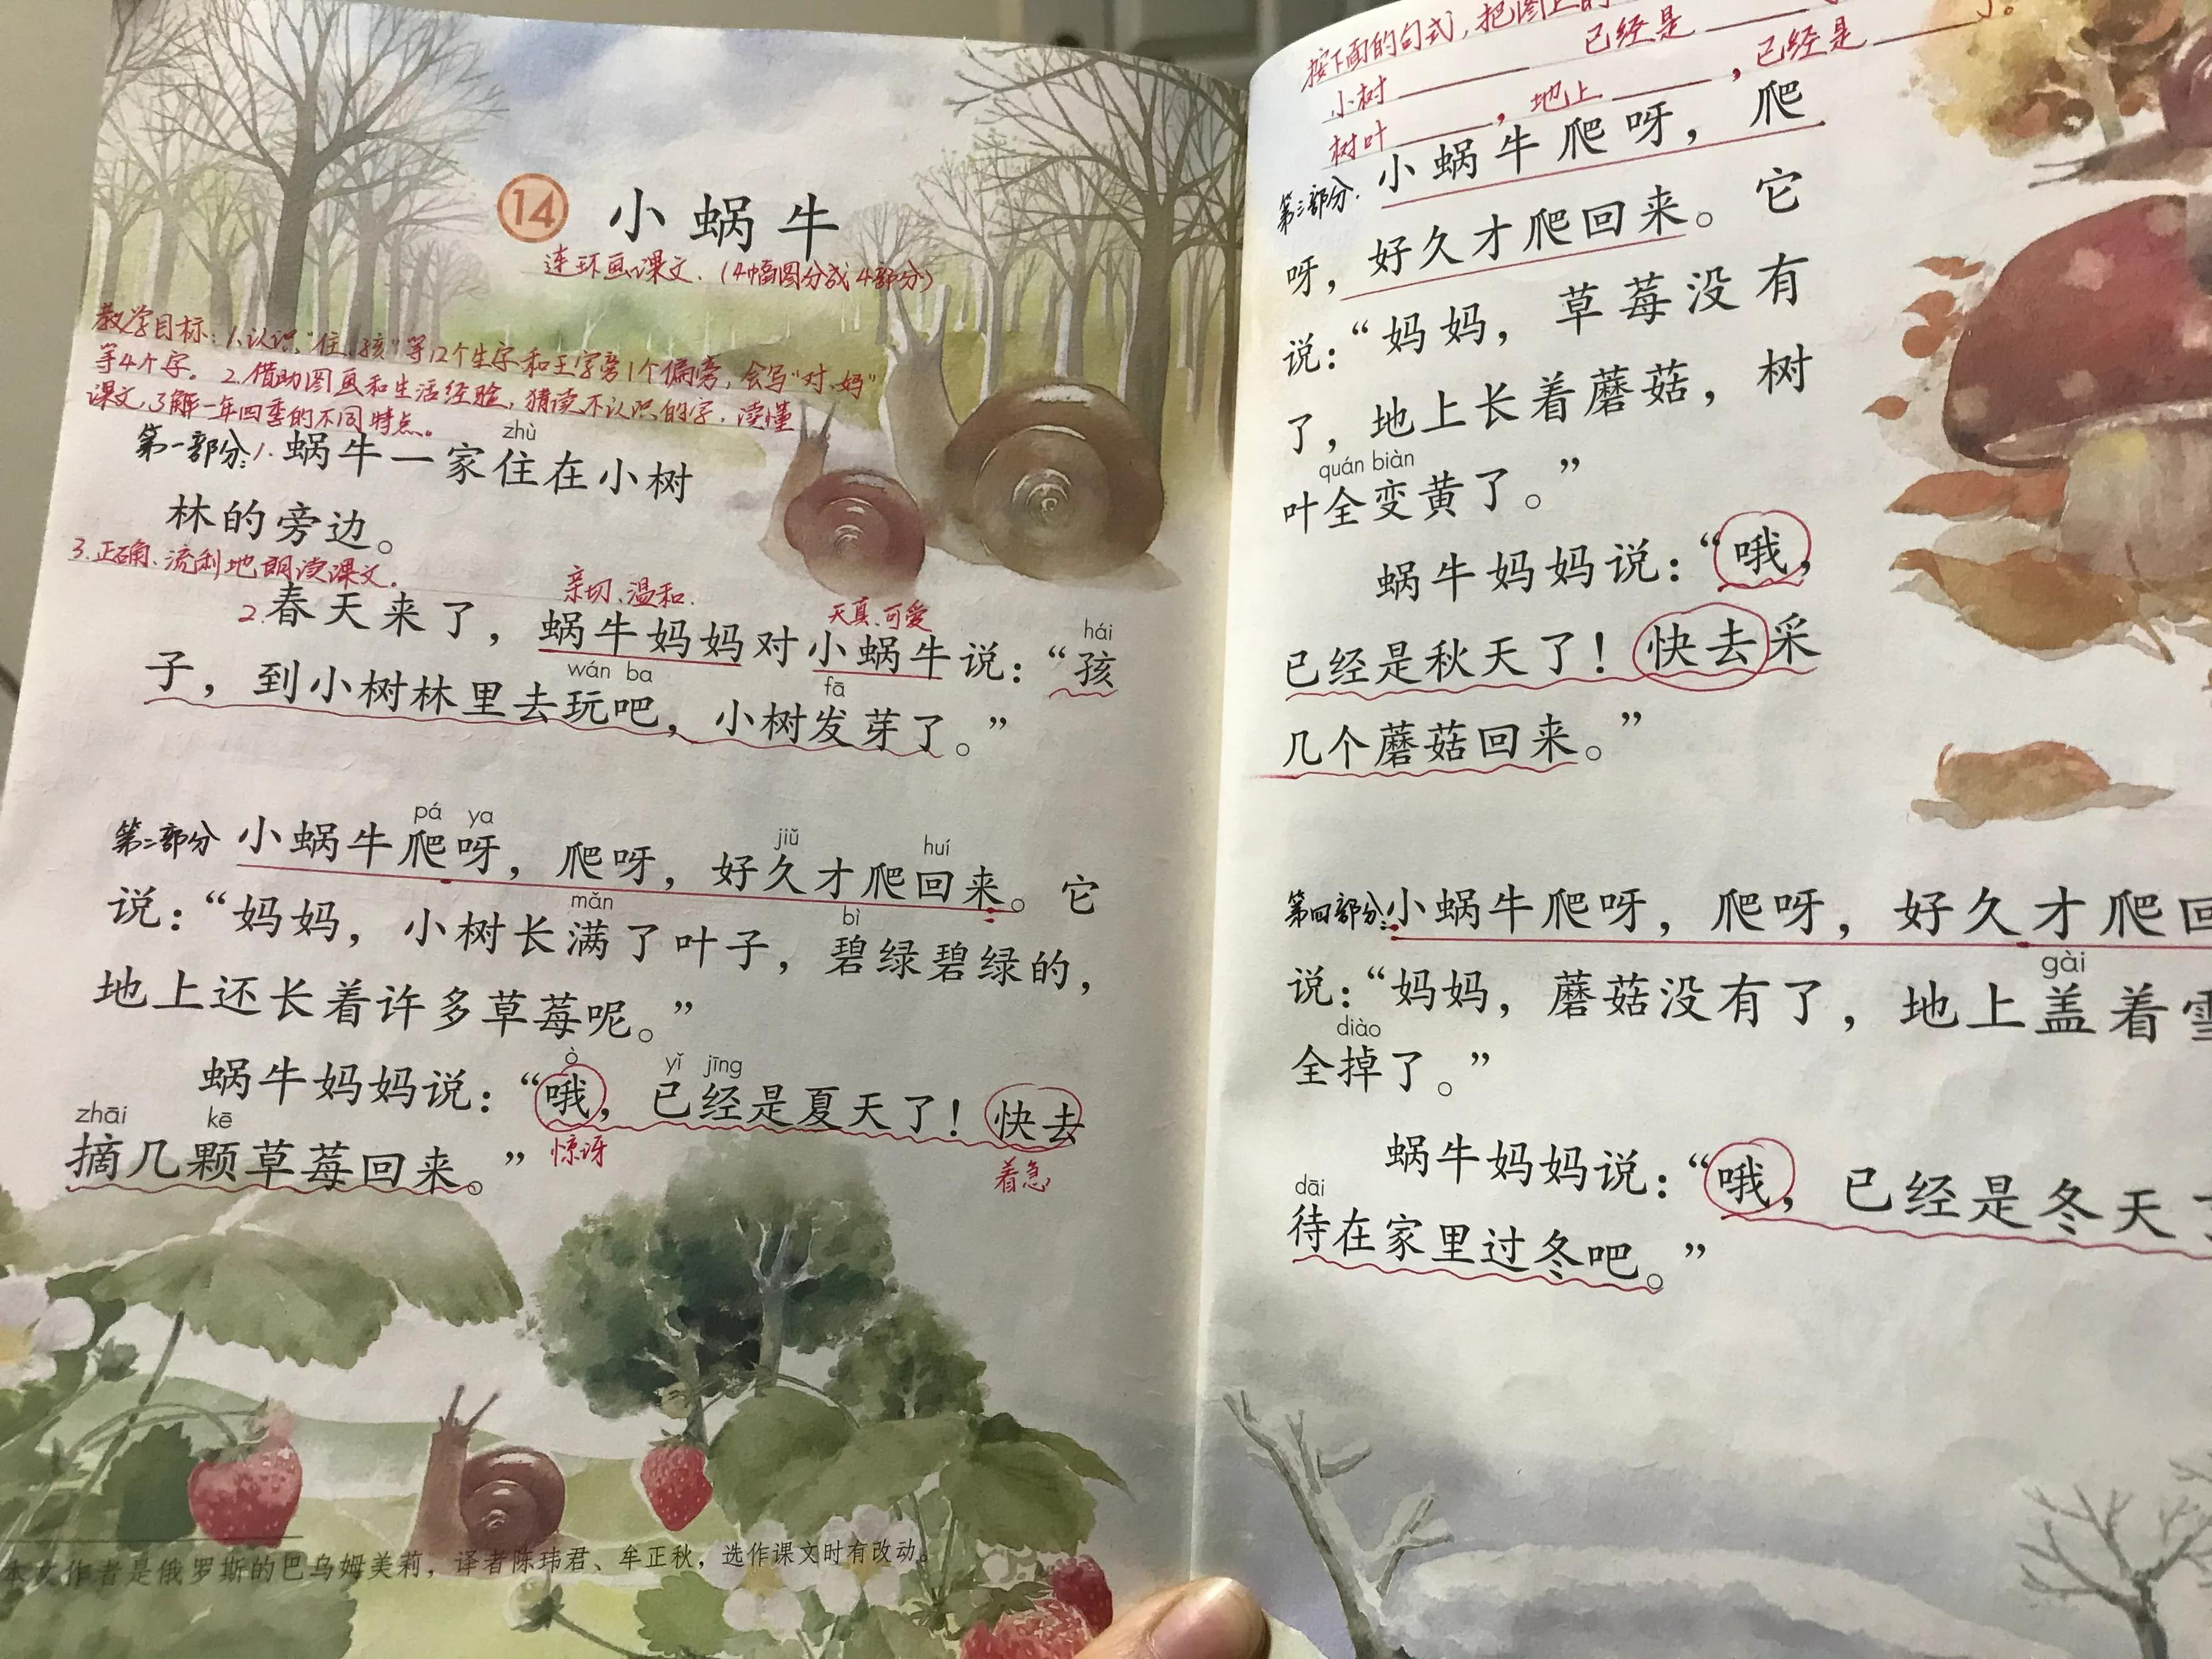 14 小蜗牛
连环画课文.（4幅图分成4部分）
教学目标：1.认识“住、孩”等12个生字和王字旁1个偏旁，会写“对、妈”
等4个字。2.借助图画和生活经验，猜读不认识的字，读懂
课文，了解一年四季的不同特点。
zhù
第一部分：1.蜗牛一家住在小树
林的旁边。
3.正确、流利地朗读课文。
亲切、温和.
天真、可爱
hái
2.春天来了，蜗牛妈妈对小蜗牛说：“孩
wán ba fā
子，到小树林里去玩吧，小树发芽了。”
pá ya jiǔ huí
第二部分 小蜗牛爬呀，爬呀，好久才爬回来。它
mǎn bì
说：“妈妈，小树长满了叶子，碧绿碧绿的，
地上还长着许多草莓呢。”
ò yǐ jīng
蜗牛妈妈说：“哦，已经是夏天了！快去
zhāi kē
摘几颗草莓回来。”
惊讶
着急
本文作者是俄罗斯的巴乌姆美莉，译者陈玮君、牟正秋，选作课文时有改动。
按下面的句式，把图上的
小树______ 已经是______
树叶______，地上______，已经是______了。
第三部分. 小蜗牛爬呀，爬
呀，好久才爬回来。它
说：“妈妈，草莓没有
了，地上长着蘑菇，树
quán biàn
叶全变黄了。”
蜗牛妈妈说：“哦，
已经是秋天了！快去采
几个蘑菇回来。”
第四部分：小蜗牛爬呀，爬呀，好久才爬回
gài
说：“妈妈，蘑菇没有了，地上盖着雪
diào
全掉了。”
蜗牛妈妈说：“哦，已经是冬天了
dāi
待在家里过冬吧。”